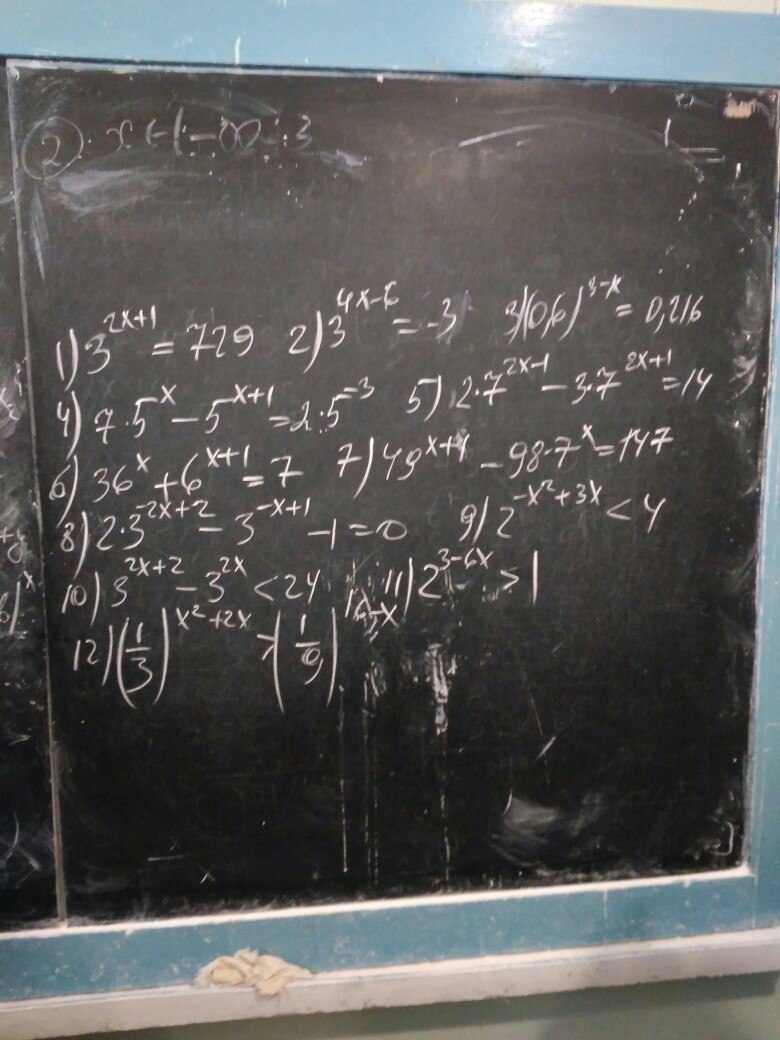 ② x ∈ (-∞ : 3
1) 3^{2x+1} = 729 2) 3^{4x-5} = -3 3) (0,6)^{3-x} = 0,216
4) 7·5^x - 5^{x+1} = 2·5^{-3} 5) 2·7^{2x-1} - 3·7^{2x+1} = 14
6) 36^x + 6^{x+1} = 7 7) 49^{x+1} - 98·7^x = 147
8) 2·3^{-2x+2} - 3^{-x+1} - 1 = 0 9) 2^{-x²+3x} < 4
10) 3^{2x+2} - 3^{2x} < 24 11) 2^{3-6x} > 1
12) (1/3)^{x²+2x} > (1/9)^{16-x}